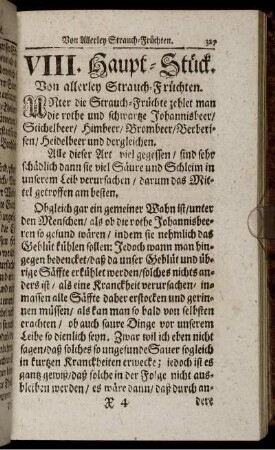 Von Allerley Strauch-Früchten. 327
VIII. Haupt-Stück.
Von allerley Strauch-Früchten.
UNter die Strauch-Früchte zehlet man
die rothe und schwartze Johannisbeer/
Stichelbeer/ Himbeer/ Brombeer/ Berberi-
sen/ Heidelbeer und dergleichen.
Alle dieser Art viel gegessen/ sind sehr
schädlich dann sie viel Säure und Schleim in
unserem Leib verursachen/ darum das Mit-
tel getroffen am besten.
Obgleich gar ein gemeiner Wahn ist/unter
den Menschen/ als ob die rothe Johannisbee-
ren so gesund wären/ indem sie nehmlich das
Geblüt kühlen sollen: Jedoch wann man hin-
gegen bedencket/daß da unser Geblüt und üb-
rige Säffte erkühlet werden/solches nichts an-
ders ist/ als eine Kranckheit verursachen/ in-
massen alle Säffte daher erstocken und gerin-
nen müssen/ als kan man so bald von selbsten
erachten/ ob auch saure Dinge vor unserem
Leibe so dienlich seyn. Zwar wil ich eben nicht
sagen/daß solches so ungesunde Sauer sogleich
in kurtzen Kranckheiten erwecke; jedoch ist es
gantz gewiß/ daß solche in der Folge nicht aus-
bleiben werden/ es wäre dann/ daß durch an-
X 4 dere